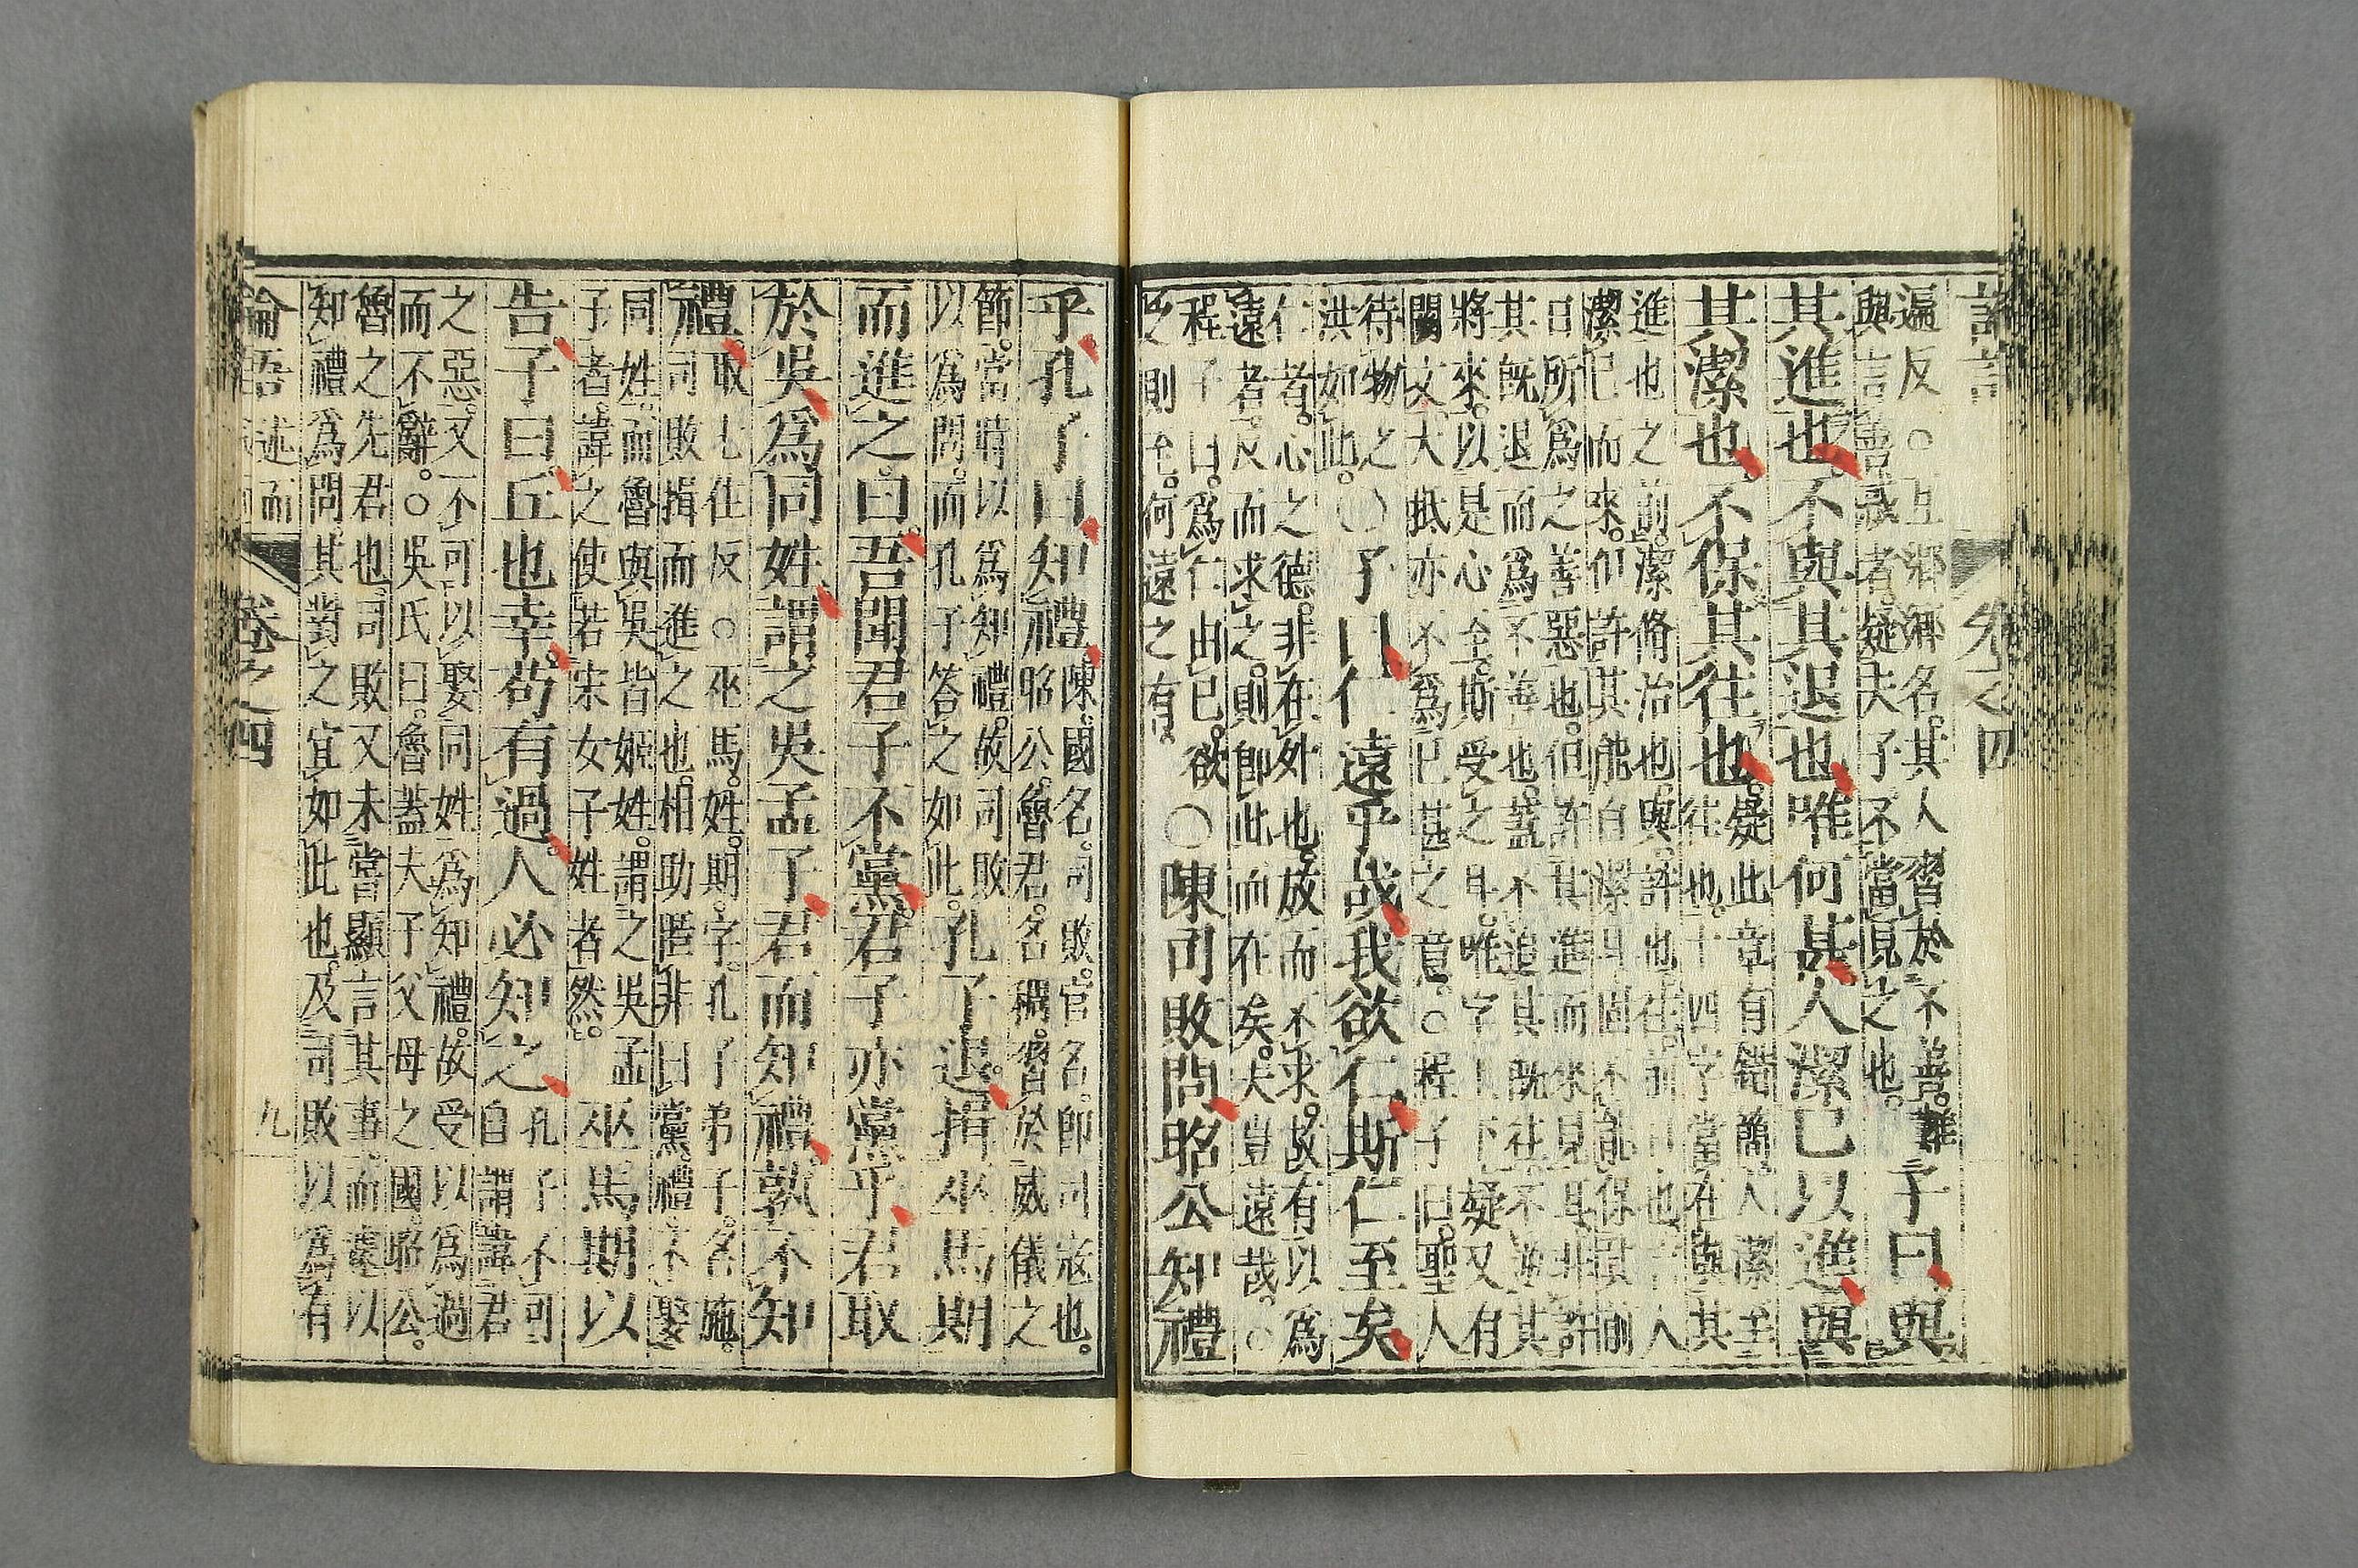 卷之四
遍反。○互鄉鄉名。其人習於不善。難
與言善。惑者。疑夫子不當見之也。
子曰與
其進也。不與其退也唯何甚人潔己以進與
其潔也。不保其往也。
疑此章有錯簡。人潔至
往也。十四字當在與其
進也之前。潔脩治也。與許也。往前日也言人
潔己而來。但許其能自潔耳固不能保其前
日所爲之善惡也。但許其進而來見耳非許
其既退而爲不善也。蓋不追其既往不逆其
將來。以是心至。斯受之耳。唯字上下疑又有
闕文大抵亦不爲已甚之意。○程子曰。聖人
待物之
洪如此。
○子曰仁遠乎哉我欲仁斯仁至矣
仁者。心之德。非在外也。放而不求。故有以爲
遠者。反而求之。則即此而在矣。夫豈遠哉。○
程子曰。爲仁由己。欲
之則至。何遠之有。
○陳司敗問昭公知禮
乎。孔子曰知禮。
陳。國名。司敗。官名。即司寇也。
昭公。魯君。名稠。習於威儀之
節。當時以爲知禮。故司敗
以爲問。而孔子答之如此。
孔子退。揖巫馬期
而進之。曰。吾聞君子不黨。君子亦黨乎。君取
於吳爲同姓謂之吳孟子君而知禮孰不知
禮。
取七住反○巫馬。姓。期。字。孔子弟子。名施。
司敗揖而進之也。相助匿非曰黨。禮。不娶
同姓。而魯與吳皆姬姓。謂之吳孟
子者。諱之使若宋女子姓者然。
巫馬期以
告。子曰。丘也幸。苟有過。人必知之
孔子不可
自謂諱君
之惡。又不可以娶同姓爲知禮。故受以爲過
而不辭。○吳氏曰。魯蓋夫子父母之國。昭公。
魯之先君也。司敗又未嘗顯言其事。而遽以
知禮爲問。其對之宜如此也。及司敗以爲有
論語述而
卷之四
九